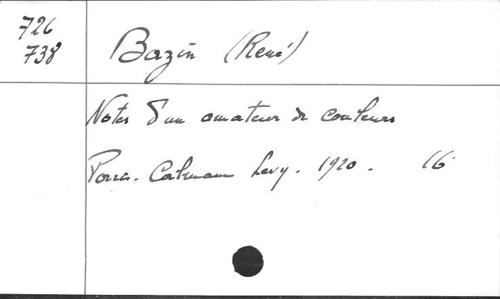 726
738
Bazin (René)
Notes d'un amateur de couleurs
Paris. Calmann Levy. 1920. 16°